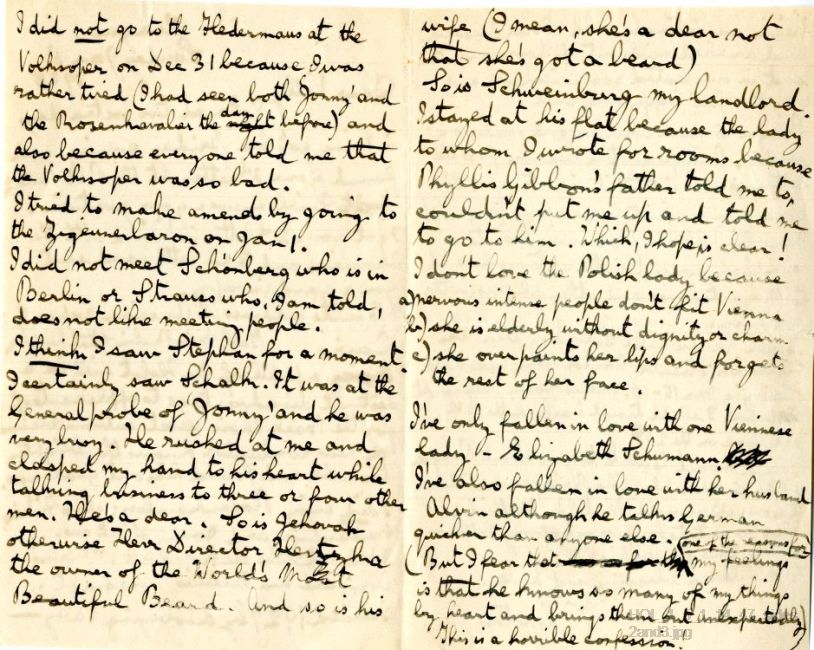 I did not go to the Fledermaus at the
Volksoper on Dec 31 because I was
rather tired (I had seen both 'Jonny' and
the Rosenkavalier the day before) and
also because everyone told me that
the Volksoper was so bad.
I tried to make amends by going to
the Zigeunerbaron on Jan 1.
I did not meet Schönberg who is in
Berlin or Strauss who, I am told,
does not like meeting people.
I think I saw Stephan for a moment.
I certainly saw Schalk. It was at the
General probe of 'Jonny' and he was
very busy. He rushed at me and
clasped my hand to his heart while
talking business to three or four other
men. He's a dear. So is Jehovah
otherwise Herr Director Hertzka
the owner of the World's Most
Beautiful Beard. And so is his
wife (I mean, she's a dear not
that she's got a beard)
So is Schweinburg my landlord.
I stayed at his flat because the lady
to whom I wrote for rooms because
Phyllis Gibbon's father told me to,
couldn't put me up and told me
to go to him. Which, I hope, is clear!
I don't love the Polish lady because
a) nervous intense people don't fit Vienna
b) she is elderly without dignity or charm
c) she over paints her lips and forgets
the rest of her face.
I've only fallen in love with one Viennese
lady - Elizabeth Schumann.
I've also fallen in love with her husband
Alvin although he talks German
quicker than anyone else.
(But I fear that one of the reasons for my feelings
is that he knows so many of my things
by heart and brings them out unexpectedly)
This is a horrible confession!
2and3.jpg